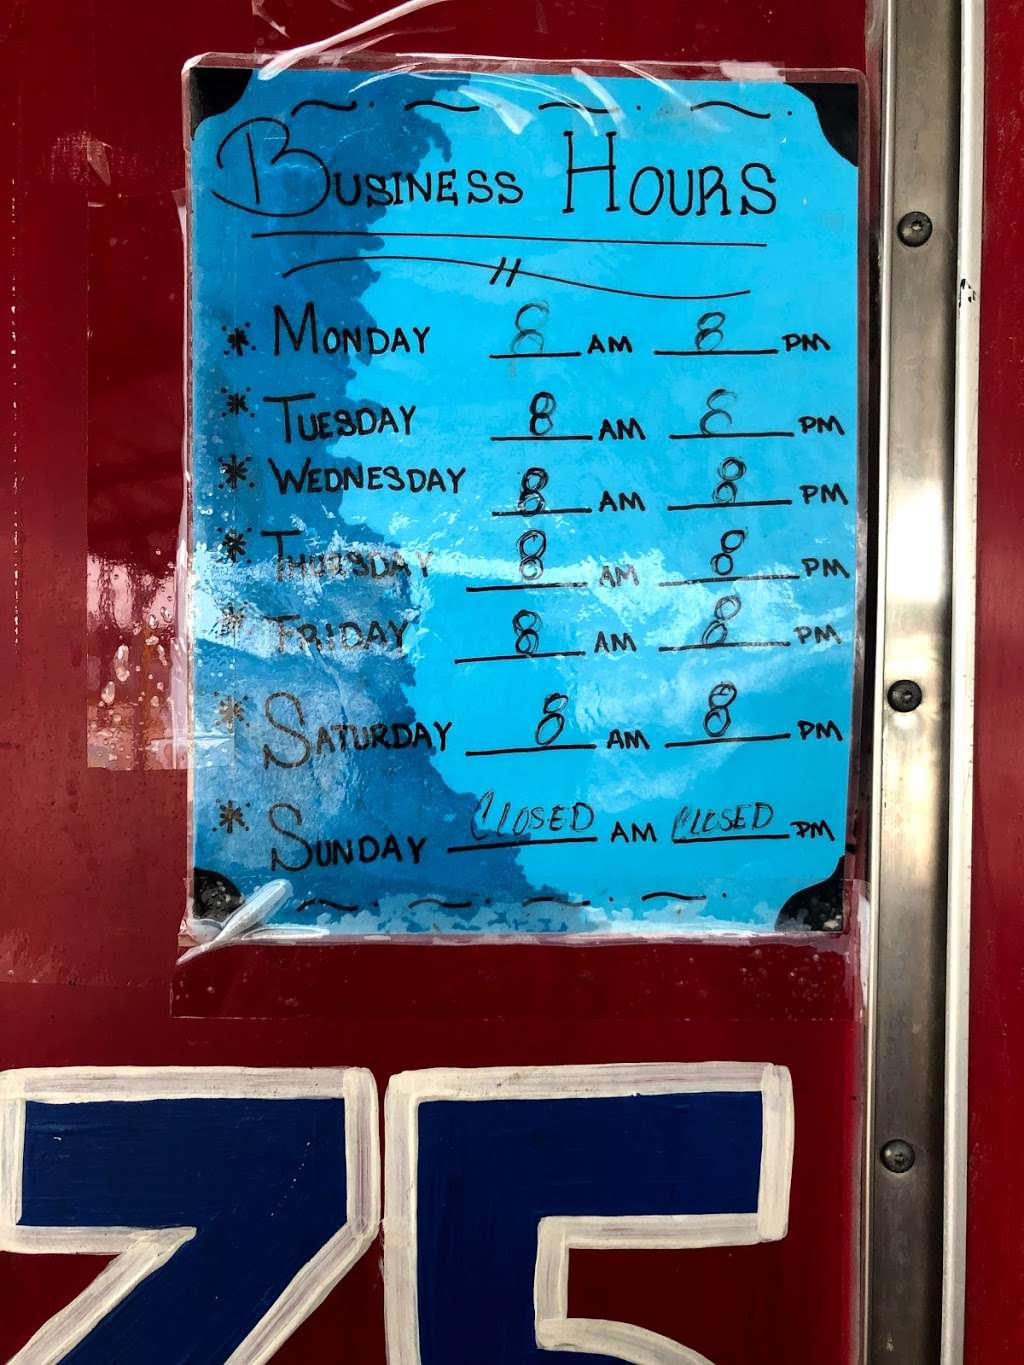 BUSINESS HOURS
* MONDAY 8 AM 8 PM
* TUESDAY 8 AM 8 PM
* WEDNESDAY 8 AM 8 PM
* THURSDAY 8 AM 8 PM
* FRIDAY 8 AM 8 PM
* SATURDAY 8 AM 8 PM
* SUNDAY CLOSED AM CLOSED PM
75